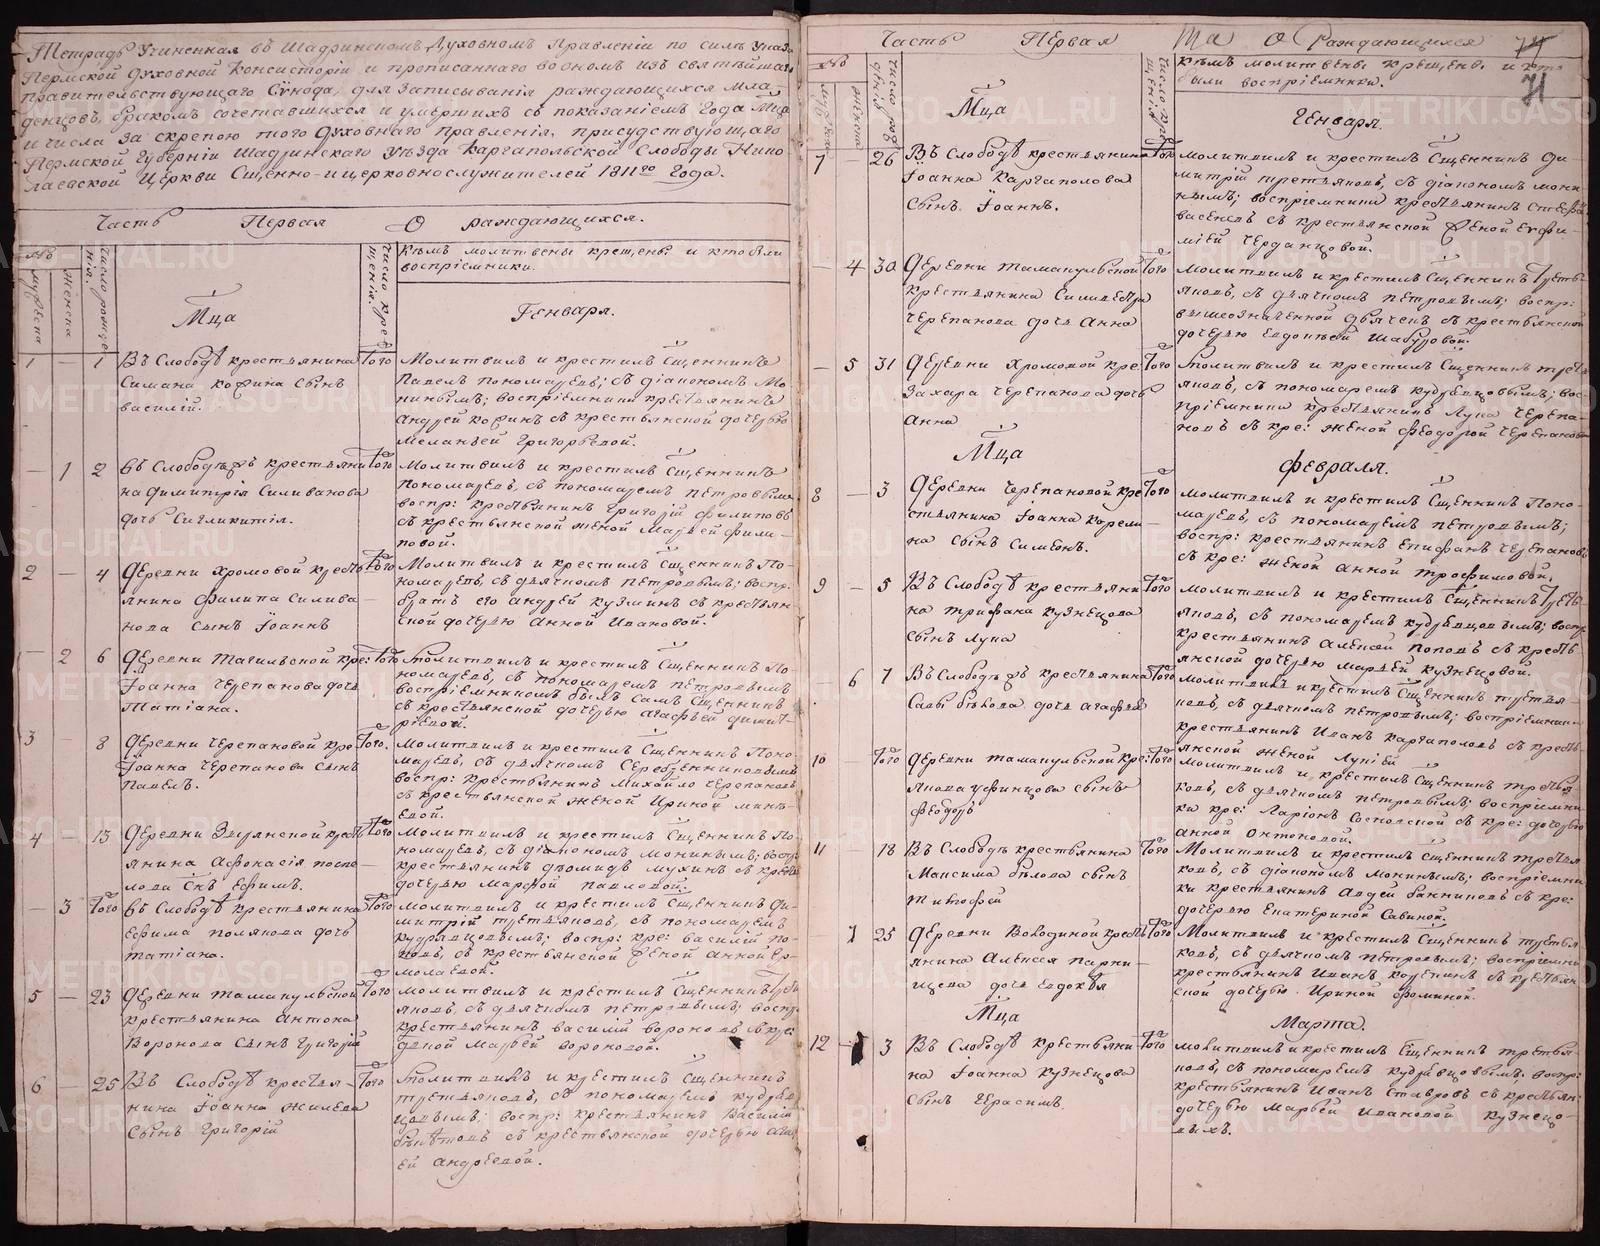 Тетрадь Учиненная въ Шадринскомъ Духовномъ Правленіи по силѣ Указа
Пермской Духовной Консисторіи и прописаннаго во ономъ изъ святѣйшаго
правительствующаго Сѵнода, для записыванія раждающихся мла
денцовъ, бракомъ сочетавшихся и умершихъ съ показаніемъ Года Мца
и числа за скрепою того Духовнаго Правленія, присудствующаго
Пермской Губерніи Шадринскаго Уѣзда Каргапольской Слободы Нико
лаевской Церкви Сщенно-и церковнослужителей 1811го Года.
Часть Первая О раждающихся.
№
мужеска
женска
Число рожде
нія.
Число кре
щенія.
Кѣмъ молитвены крещены и кто были
воспріемники.
Мца
Генваря.
1 — 1 Въ Слободѣ крестьянина
Симана Козина сынъ
василій.
Того
Молитвилъ и крестилъ Сщенникъ
Павелъ пономаревъ, съ діакономъ Мо
нинымъ; воспріемники крестьянинъ
Андрей Козинъ съ крестьянской дочерью
Меланьей Григорьевой.
— 1 2 въ Слободѣ крестьяни
на Димитрія Силиванова
дочь Сигликитія.
Того
Молитвилъ и крестилъ Сщенникъ
пономаревъ, съ пономаремъ петровымъ
воспр: крестьянинъ Григорій филиповъ
съ крестьянской женой Марьей фили-
повой.
2 — 4 Деревни Хромовой кресть
янина Филипа Силива
нова Сынъ Іоаннъ
Того
Молитвилъ и крестилъ Сщенникъ По-
номаревъ, съ дьячкомъ петровымъ; воспр.
братъ его андрей кузминъ съ крестьян
ской дочерью Анной Ивановой.
— 2 6 Деревни Тагильской кре:
Іоанна Черепанова дочь
Татіана.
Того
Молитвилъ и крестилъ Сщенникъ По-
номаревъ, съ пономаремъ петровымъ
воспріемникомъ былъ Самъ Сщенникъ
съ крестьянской дочерью агафьей димит-
ріевой.
3 — 8 Деревни Черепановой кре
Іоанна Черепанова Сынъ
Павелъ.
Того.
Молитвилъ и крестилъ Сщенникъ Поно
маревъ, съ дьячкомъ Серебренниковымъ
воспр: крестьянинъ Михайло черепановъ
съ крестьянской женой Ириной мин-
евой.
4 — 13 Деревни
янина Афонасія поспе
лова Снъ Ефимъ.
Того
Молитвилъ и крестилъ Сщенникъ По-
номаревъ, съ діакономъ Монинымъ; воспр:
крестьянинъ діомидъ мухинъ съ кресть
дочерью Марфой павловой.
— 3 Того въ Слободѣ крестьянина
Ефима полякова дочь
татіана.
Того
Молитвилъ и крестилъ Сщенникъ Ди-
митрій третьяковъ, съ пономаремъ
кудрявцовымъ; воспр: кре: василій по-
повъ, съ крестьянской женой анной ер-
молаевой.
5 — 23 Деревни Тамакульской
крестьянина антона
Воронова Сынъ Григорій
Того
Молитвилъ и крестилъ Сщенникъ Треть
яковъ, съ дьячкомъ петровымъ; воспр:
крестьянинъ василій вороновъ съ кре:
женой Марьей вороновой.
6 — 25 Въ Слободѣ крестья-
нина Іоанна Жилева
Сынъ Григорій
Того
Молитвилъ и крестилъ Сщенникъ
третьяковъ, съ пономаремъ кудряв
цовымъ; воспр: крестьянинъ Василій
съ крестьянской дочерью
ей андреевой.
Часть Первая
та О Раждающихся
71
№
мужеска
женска
Число рож
денія
Число кре
щенія
Кѣмъ молитвены крещены и кто
были воспріемники.
Мца
Генваря.
7 26 Въ Слободѣ крестьянина
Іоанна Каргаполова
Сынъ Іоаннъ.
Того
Молитвилъ и крестилъ Сщенникъ Ди-
митрій третьяковъ, съ діакономъ мони-
нымъ; воспріемники крестьянинъ
съ крестьянской женой Евфи-
міей Черданцовой.
— 4 30 Деревни Тамакульской
Крестьянина Силивестра
Черепанова дочь Анна
Того
Молитвилъ и крестилъ Сщенникъ Треть-
яковъ, съ дьячкомъ петровымъ; воспр:
вышеозначенной дьячекъ съ крестьянской
дочерью Евдокіей Шабуровой.
— 5 31 Деревни Хромовой кре
Захара Черепанова дочь
Анна
Того
Молитвилъ и крестилъ Сщенникъ треть
яковъ, съ пономаремъ кудрявцовымъ; вос-
пріемники крестьянинъ Лука черепа-
новъ съ кре: женой феодорой черепановой
Мца
Февраля.
8 — 3 Деревни Черепановой кре
стьянина Іоанна Карели-
на Сынъ Симеонъ.
Того
Молитвилъ и крестилъ Сщенникъ Поно-
маревъ, съ пономаремъ петровымъ;
воспр: крестьянинъ Епифанъ черепановъ
съ кре: женой анной трофимовой.
9 — 5 Въ Слободѣ крестьяни
на трифана кузнецова
Сынъ Лука
Того
Молитвилъ и крестилъ Сщенникъ Треть-
яковъ, съ пономаремъ кудрявцовымъ; воспр:
крестьянинъ алексѣй поповъ съ кресть
янской дочерью марьей кузнецовой.
— 6 7 Въ Слободѣ крестьянина
Савы бѣлова дочь агафья
Того
Молитвилъ и крестилъ Сщенникъ третья
ковъ, съ дьячкомъ петровымъ; воспріемни
крестьянинъ Иванъ каргаполовъ съ кресть-
янской женой Лукіей
10 Того Деревни Тамакульской кре:
Якова уфинцова сынъ
Феодоръ
Того
Молитвилъ и крестилъ Сщенникъ третья
ковъ, съ дьячкомъ петровымъ; воспріемни
ки кре: Ларіонъ Сосновской съ кре: дочерью
анной Антоновой.
11 — 18 Въ Слободѣ крестьянина
Максима бѣлова сынъ
Тимофей
Того
Молитвилъ и крестилъ Сщенникъ третья
ковъ, съ діакономъ Монинымъ; воспріемни
ки крестьянинъ Авдей банниковъ съ кре:
дочерью Екатериной Савиной.
— 7 25 Деревни Володиной кресть
янина Алексея парши-
цева дочь Евдокія
Того
Молитвилъ и крестилъ Сщенникъ третья
ковъ, съ дьячкомъ петровымъ; воспріемни
крестьянинъ Иванъ карепинъ съ крестьян
ской дочерью Ириной Фоминой.
Мца
Марта.
12 — 3 Въ Слободѣ крестьяни
на Іоанна кузнецова
Сынъ Герасимъ.
Того
Молитвилъ и крестилъ Сщенникъ третья
ковъ, съ пономаремъ кудрявцовымъ, воспр:
крестьянинъ Иванъ Ставровъ съ крестьян
дочерью Марьей Ивановой кузнецо-
выхъ.